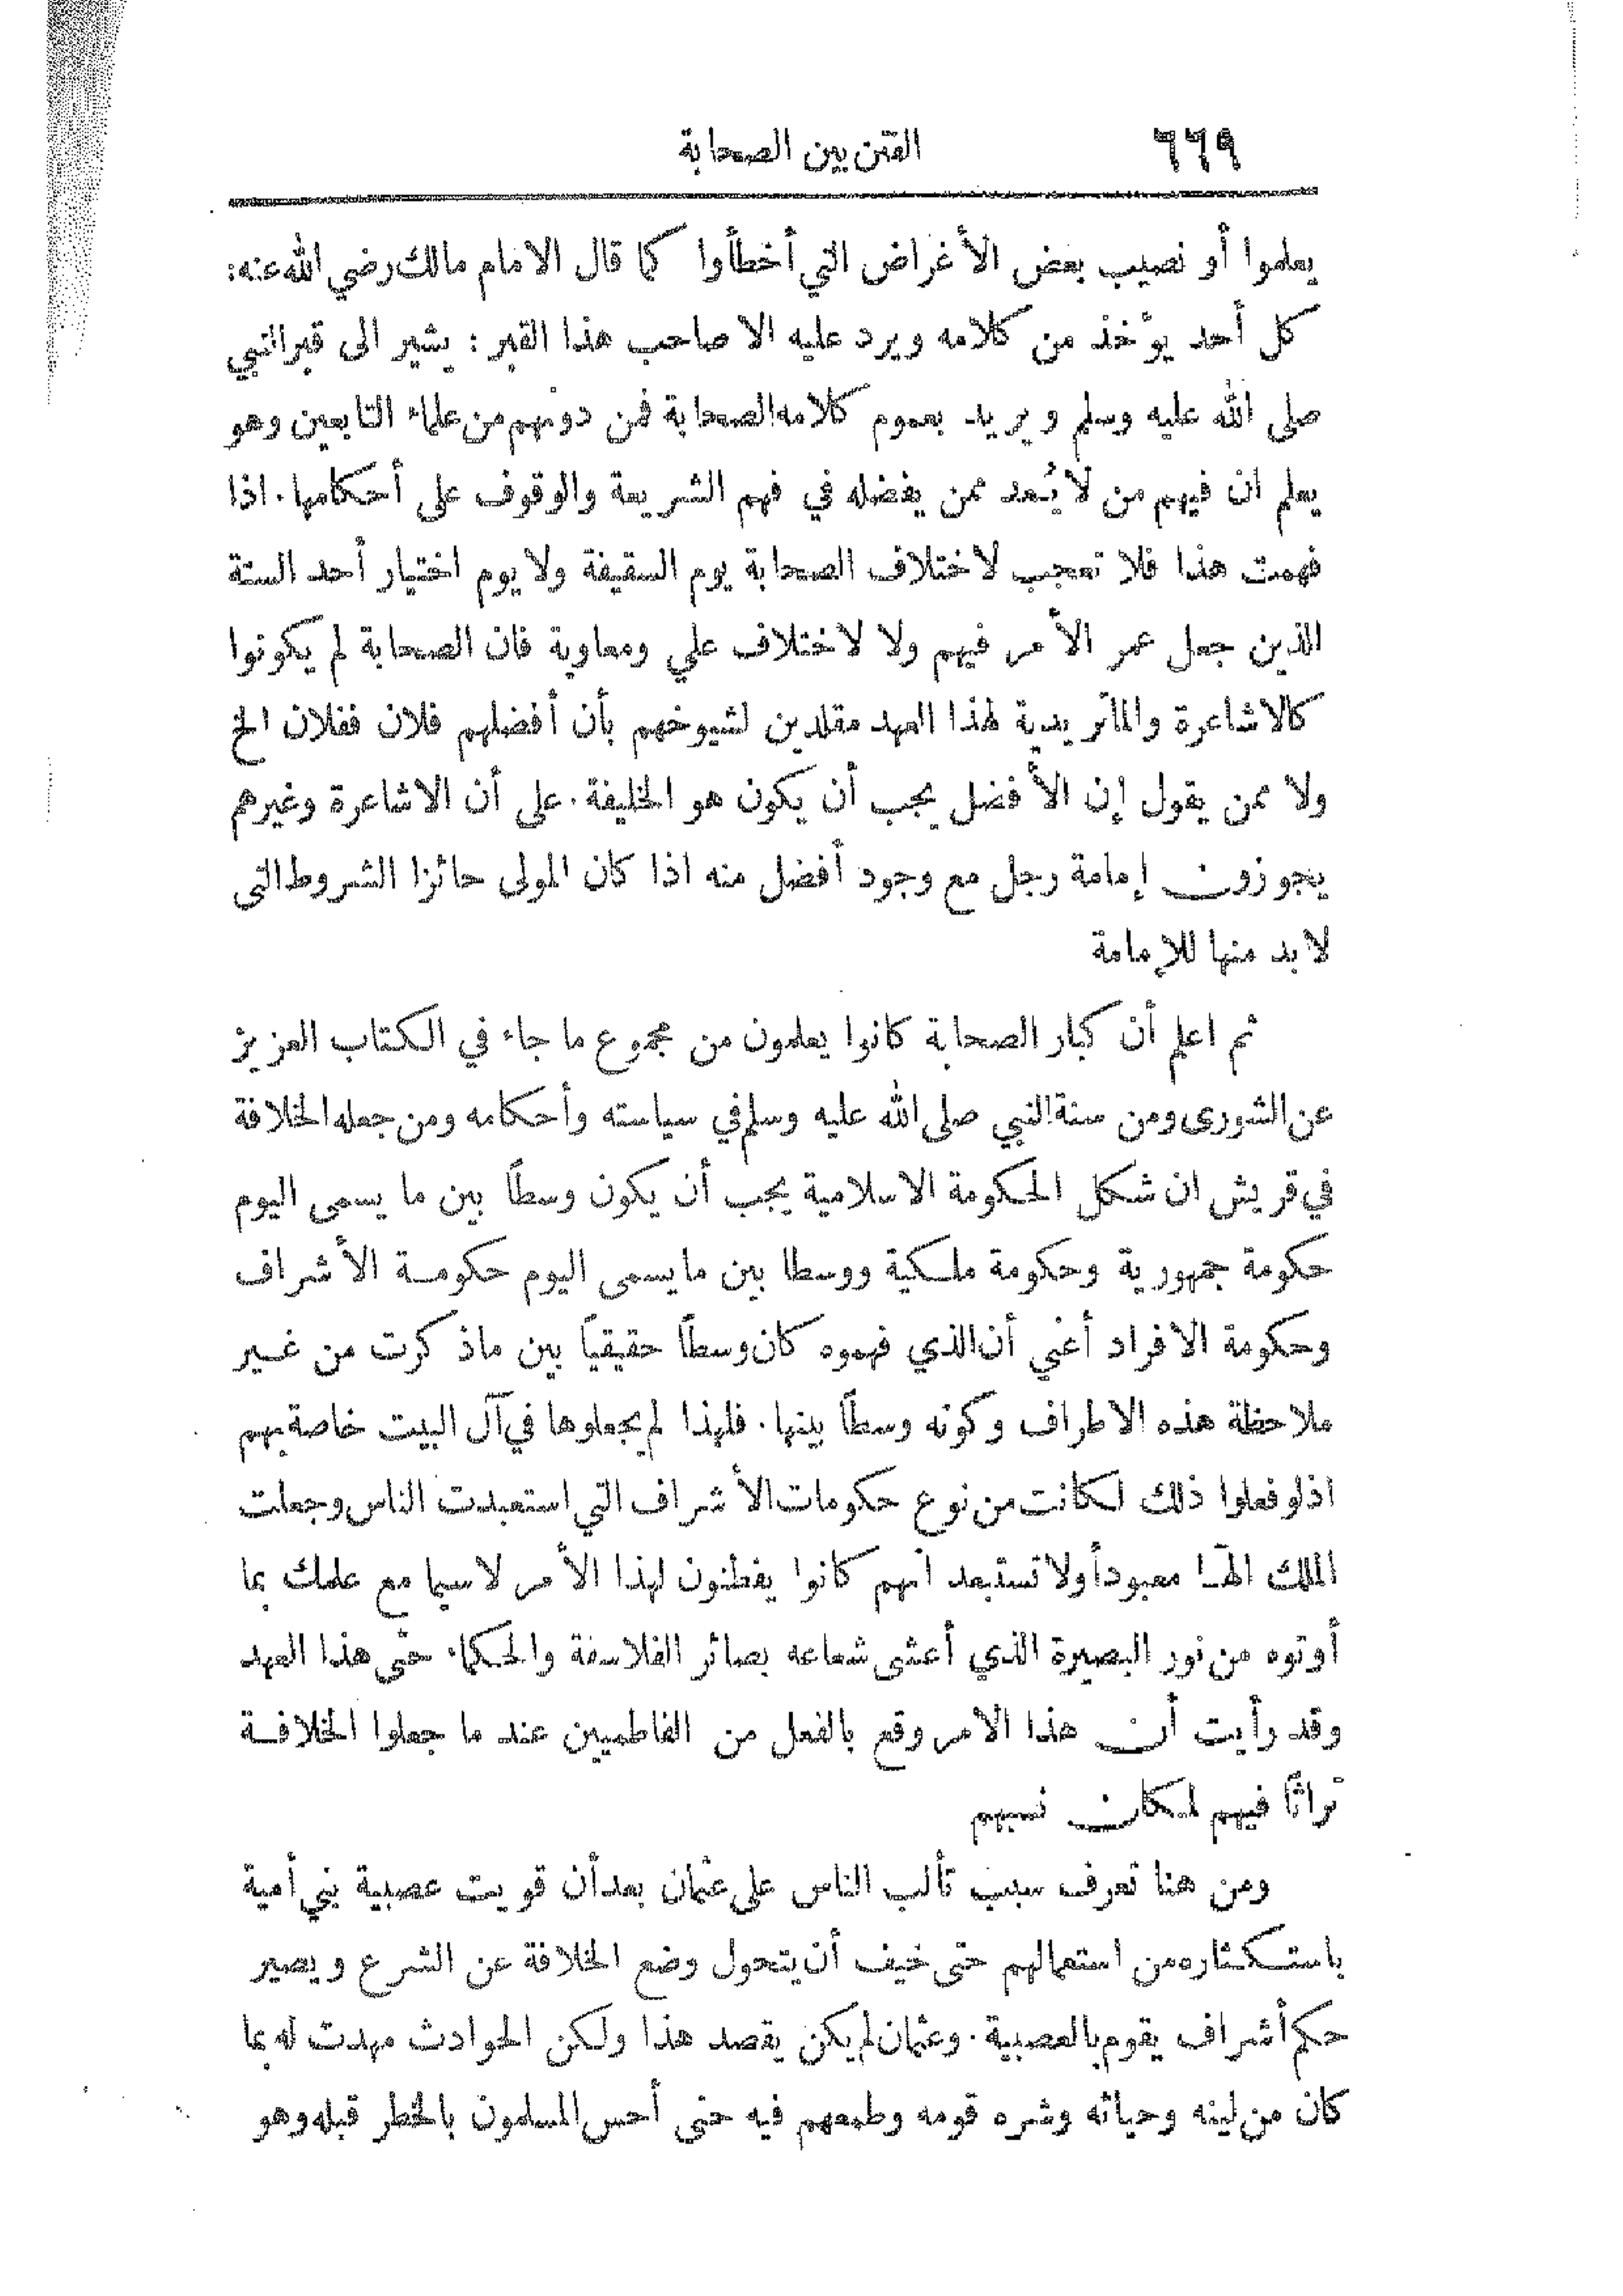 ٦٦٩ الفتن بين الصحابة
يعلموا أو نصيب بعض الأغراض التي أخطأوا كما قال الامام مالك رضي الله عنه:
كل أحد يؤخذ من كلامه ويرد عليه الا صاحب هذا القبر : يشير الى قبر النبي
صلى الله عليه وسلم ويريد بعموم كلامه الصحابة فمن دونهم من علماء التابعين وهو
يعلم ان فيهم من لا يُعد ممن يفضله في فهم الشريعة والوقوف على أحكامها. اذا
فهمت هذا فلا تعجب لاختلاف الصحابة يوم السقيفة ولا يوم اختيار أحد الستة
الذين جعل عمر الأمر فيهم ولا لاختلاف علي ومعاوية فان الصحابة لم يكونوا
كالاشاعرة والماتريدية لهذا العهد مقلدين لشيوخهم بأن أفضلهم فلان ففلان الخ
ولا ممن يقول إن الأفضل يجب أن يكون هو الخليفة. على أن الاشاعرة وغيرهم
يجوزون إمامة رجل مع وجود أفضل منه اذا كان المولى حائزا الشروط التى
لا بد منها للإمامة
ثم اعلم أن كبار الصحابة كانوا يعلمون من مجموع ما جاء في الكتاب العزيز
عن الشورى ومن سنة النبي صلى الله عليه وسلم في سياسته وأحكامه ومن جعله الخلافة
في قريش ان شكل الحكومة الاسلامية يجب أن يكون وسطًا بين ما يسمى اليوم
حكومة جمهورية وحكومة ملكية ووسطا بين ما يسمى اليوم حكومة الأشراف
وحكومة الافراد أعني أن الذي فهموه كان وسطًا حقيقيًا بين ما ذكرت من غير
ملاحظة هذه الاطراف وكونه وسطًا بينها. فلهذا لم يجعلوها في آل البيت خاصة بهم
اذ لو فعلوا ذلك لكانت من نوع حكومات الأشراف التي استعبدت الناس وجعلت
الملك الهًا معبودًا ولا تستبعد انهم كانوا يفطنون لهذا الأمر لا سيما مع علمك بما
أوتوه من نور البصيرة الذي أعشى شعاعه بصائر الفلاسفة والحكماء حتى هذا العهد
وقد رأيت أن هذا الامر وقع بالفعل من الفاطميين عند ما جعلوا الخلافة
تراثًا فيهم لمكان نسبهم
ومن هنا تعرف سبب تألب الناس على عثمان بعد أن قويت عصبية بني أمية
باستكثاره من استعمالهم حتى خيف أن يتحول وضع الخلافة عن الشرع ويصير
حكم أشراف يقوم بالعصبية. وعثمان لم يكن يقصد هذا ولكن الحوادث مهدت له بما
كان من لينه وحيائه وشره قومه وطمعهم فيه حتى أحس المسلمون بالخطر قبله وهو